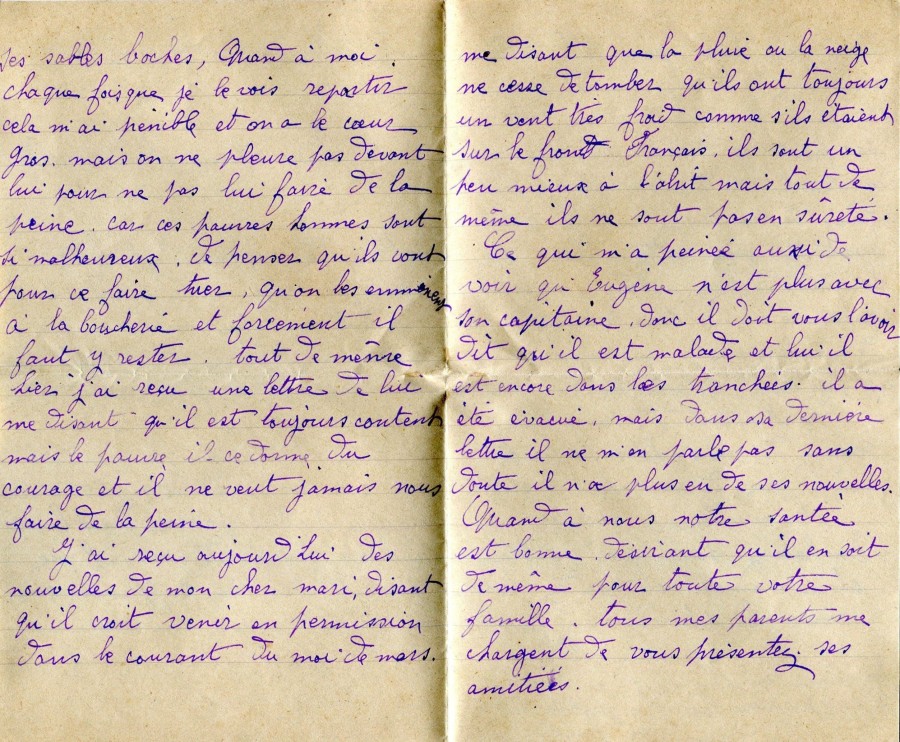 des sables boches, Quand à moi
chaque fois que je le vois repartir
cela m'ai pénible et on a le cœur
gros. mais on ne pleure pas devant
lui pour ne pas lui faire de la
peine. car ces pauvres hommes sont
si malheureux. de penser qu'ils vont
pour ce faire tuer, qu'on les emmènent
à la boucherie et forcément il
faut y rester. tout de même
hier j'ai reçu une lettre de lui
me disant qu'il est toujours content
mais le pauvre il ce donne du
courage et il ne veut jamais nous
faire de la peine.
J'ai reçu aujourd'hui des
nouvelles de mon cher mari, disant
qu'il croit venir en permission
dans le courant du moi de mars.
me disant que la pluie ou la neige
ne cesse de tomber qu'ils ont toujours
un vent très froid comme s'ils étaient
sur le front Français, ils sont un
peu mieux à l'abrit mais tout de
même ils ne sont pas en sûreté.
Ce qui m'a peinée aussi de
voir qu'Eugène n'est plus avec
son capitaine, donc il doit vous l'avoir
dit qu'il est malade et lui il
est encore dans les tranchées. il a
été évacué, mais dans sa dernière
lettre il ne m'en parle pas sans
doute il n'a plus eu de ses nouvelles.
Quand à nous notre santée
est bonne. désirant qu'il en soit
de même pour toute votre
famille. tous mes parents me
chargent de vous présentez ses
amitiées.